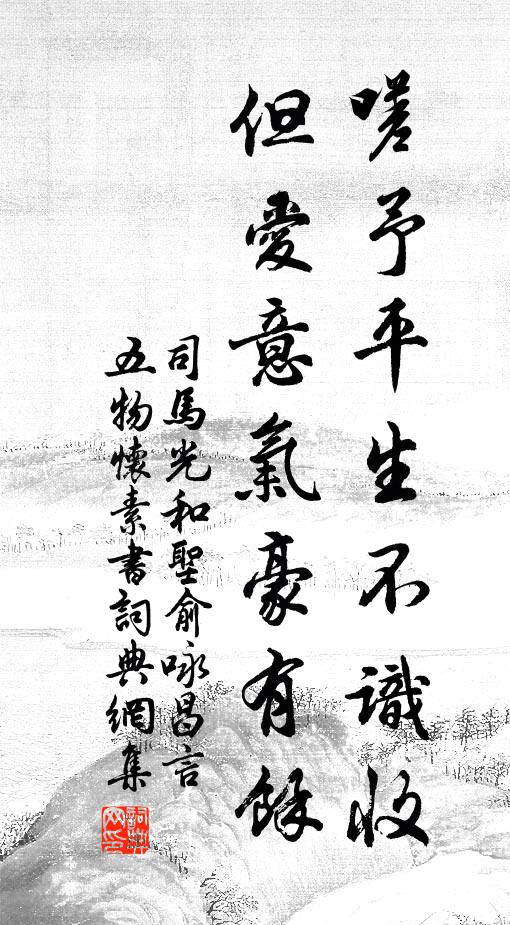 嗟予平生不識收
但愛意氣豪有餘
司馬光和聖俞咏昌言
五物懷素書詞典網集
詞典网印